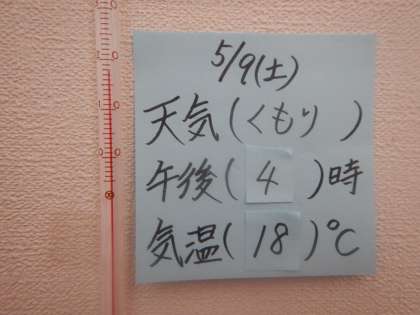 5/9(土)
天気(くもり)
午後(4)時
気温(18)℃